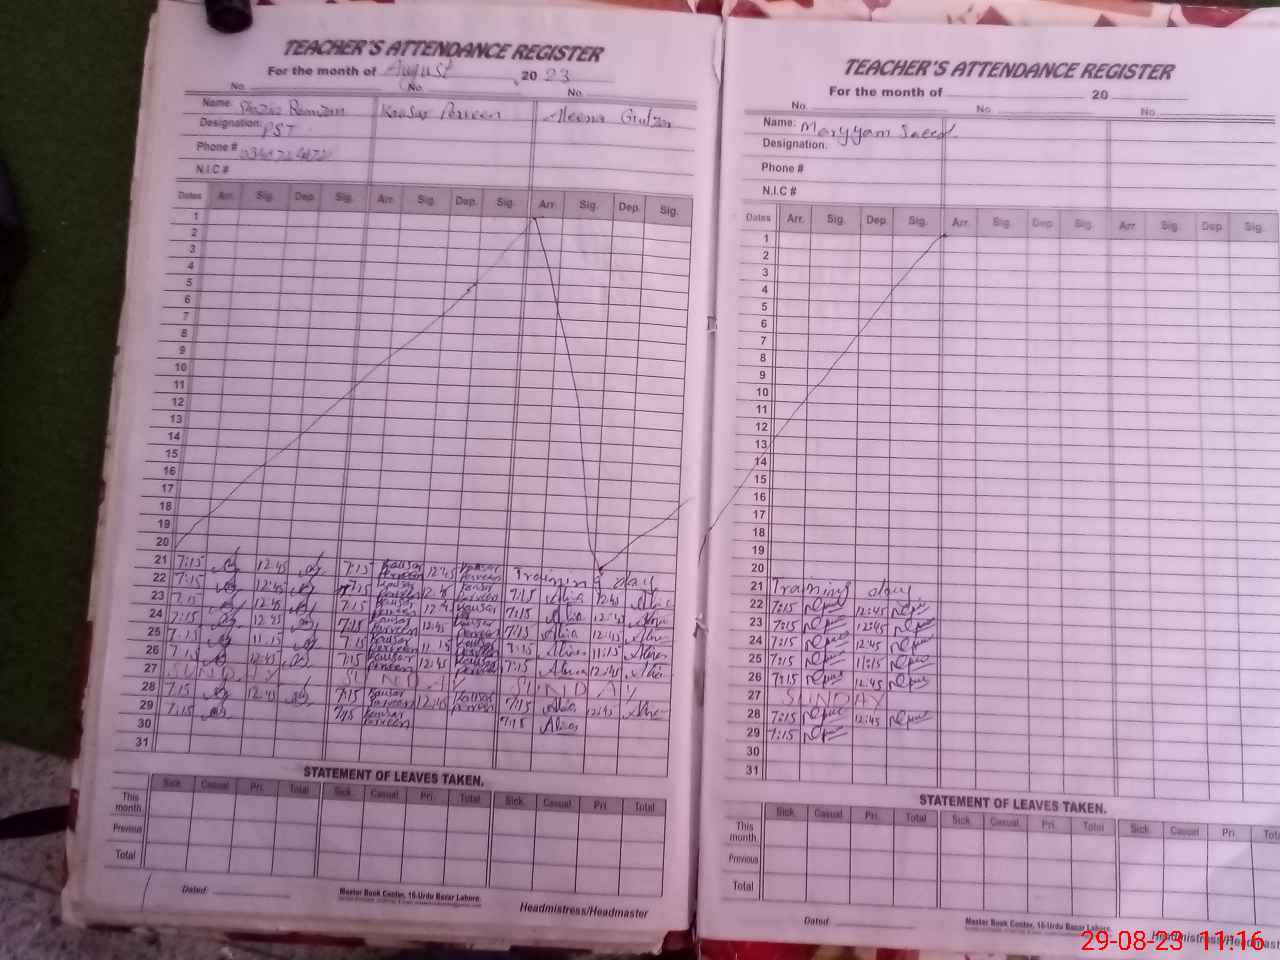 TEACHER'S ATTENDANCE REGISTER
For the month of August 20 23
No. No. No.
Name: Shazia Ramzan Kausar Perveen Aleena Gulzar
Designation: PST
Phone #
N.I.C #
Dates Arr. Sig. Dep. Sig. Arr. Sig. Dep. Sig. Arr. Sig. Dep. Sig.
1
2
3
4
5
6
7
8
9
10
11
12
13
14
15
16
17
18
19
20
21 7:15 12:45 7:15 Kausar Perveen 12:45 Kausar Perveen Training day
22 7:15 12:45 7:15 Kausar Perveen 12:45 Kausar Perveen 7:15 12:45
23 7:15 12:45 7:15 Kausar Perveen 12:45 Kausar Perveen 7:15 12:45
24 7:15 12:45 7:15 Kausar Perveen 12:45 Kausar Perveen 7:15 12:45
25 7:15 11:15 7:15 Kausar Perveen 11:15 Kausar Perveen 7:15 11:15
26 7:15 12:45 7:15 Kausar Perveen 12:45 Kausar Perveen 7:15 12:45
27 SUNDAY SUNDAY SUNDAY
28 7:15 12:45 7:15 Kausar Perveen 12:45 Kausar Perveen 7:15 12:45
29 7:15 7:15 Kausar Perveen 7:15
30
31
STATEMENT OF LEAVES TAKEN.
Sick. Casual. Pri. Total Sick. Casual. Pri. Total Sick. Casual. Pri. Total
This month
Previous
Total
Dated
Master Book Center, 16-Urdu Bazar Lahore.
Headmistress/Headmaster
TEACHER'S ATTENDANCE REGISTER
For the month of 20
No. No. No.
Name: Maryyam Saeed
Designation:
Phone #
N.I.C #
Dates Arr. Sig. Dep. Sig. Arr. Sig. Dep. Sig. Arr. Sig. Dep. Sig.
1
2
3
4
5
6
7
8
9
10
11
12
13
14
15
16
17
18
19
20
21 Training day
22 7:15 12:45
23 7:15 12:45
24 7:15 12:45
25 7:15 11:15
26 7:15 12:45
27 SUNDAY
28 7:15 12:45
29 7:15
30
31
STATEMENT OF LEAVES TAKEN.
Sick. Casual. Pri. Total Sick. Casual. Pri. Total Sick. Casual. Pri.
This month
Previous
Total
Dated
Master Book Center, 16-Urdu Bazar Lahore.
Headmistress/Headmaster
29-08-23 11:16